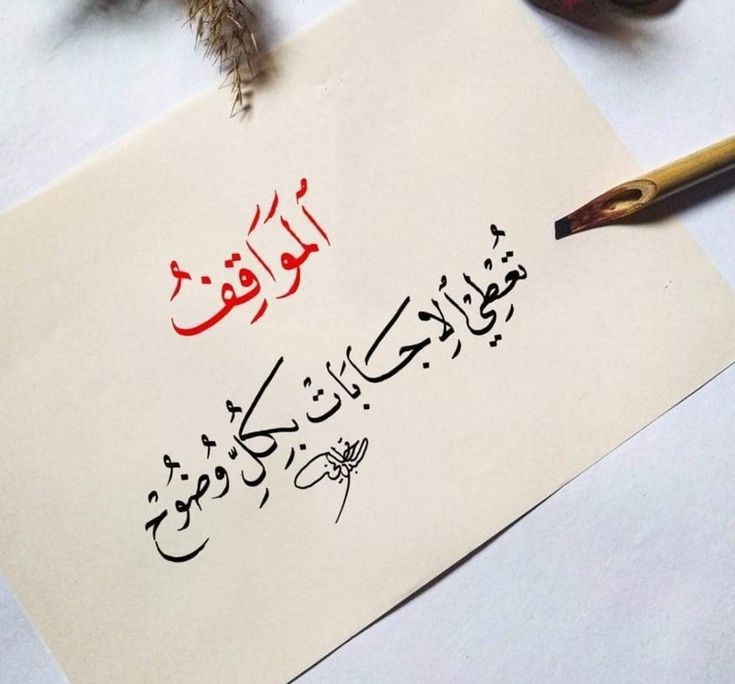 اُلمَوَاَقِفُ
تُعِطْيَ اُلاِجَابَاتْ بِكُلِّ وُضُوُحْ